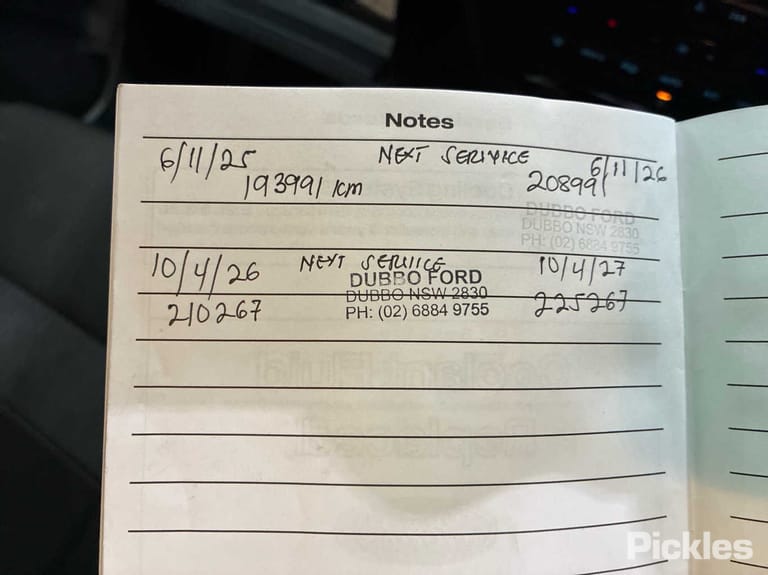 Notes
6/11/25 NEXT SERVICE 6/11/26
193991 km 208991
DUBBO FORD
DUBBO NSW 2830
PH: (02) 6884 9755
10/4/26 NEXT SERVICE 10/4/27
DUBBO FORD
DUBBO NSW 2830
210267 225267
PH: (02) 6884 9755
Coolant Fluid
Replaced
Pickles